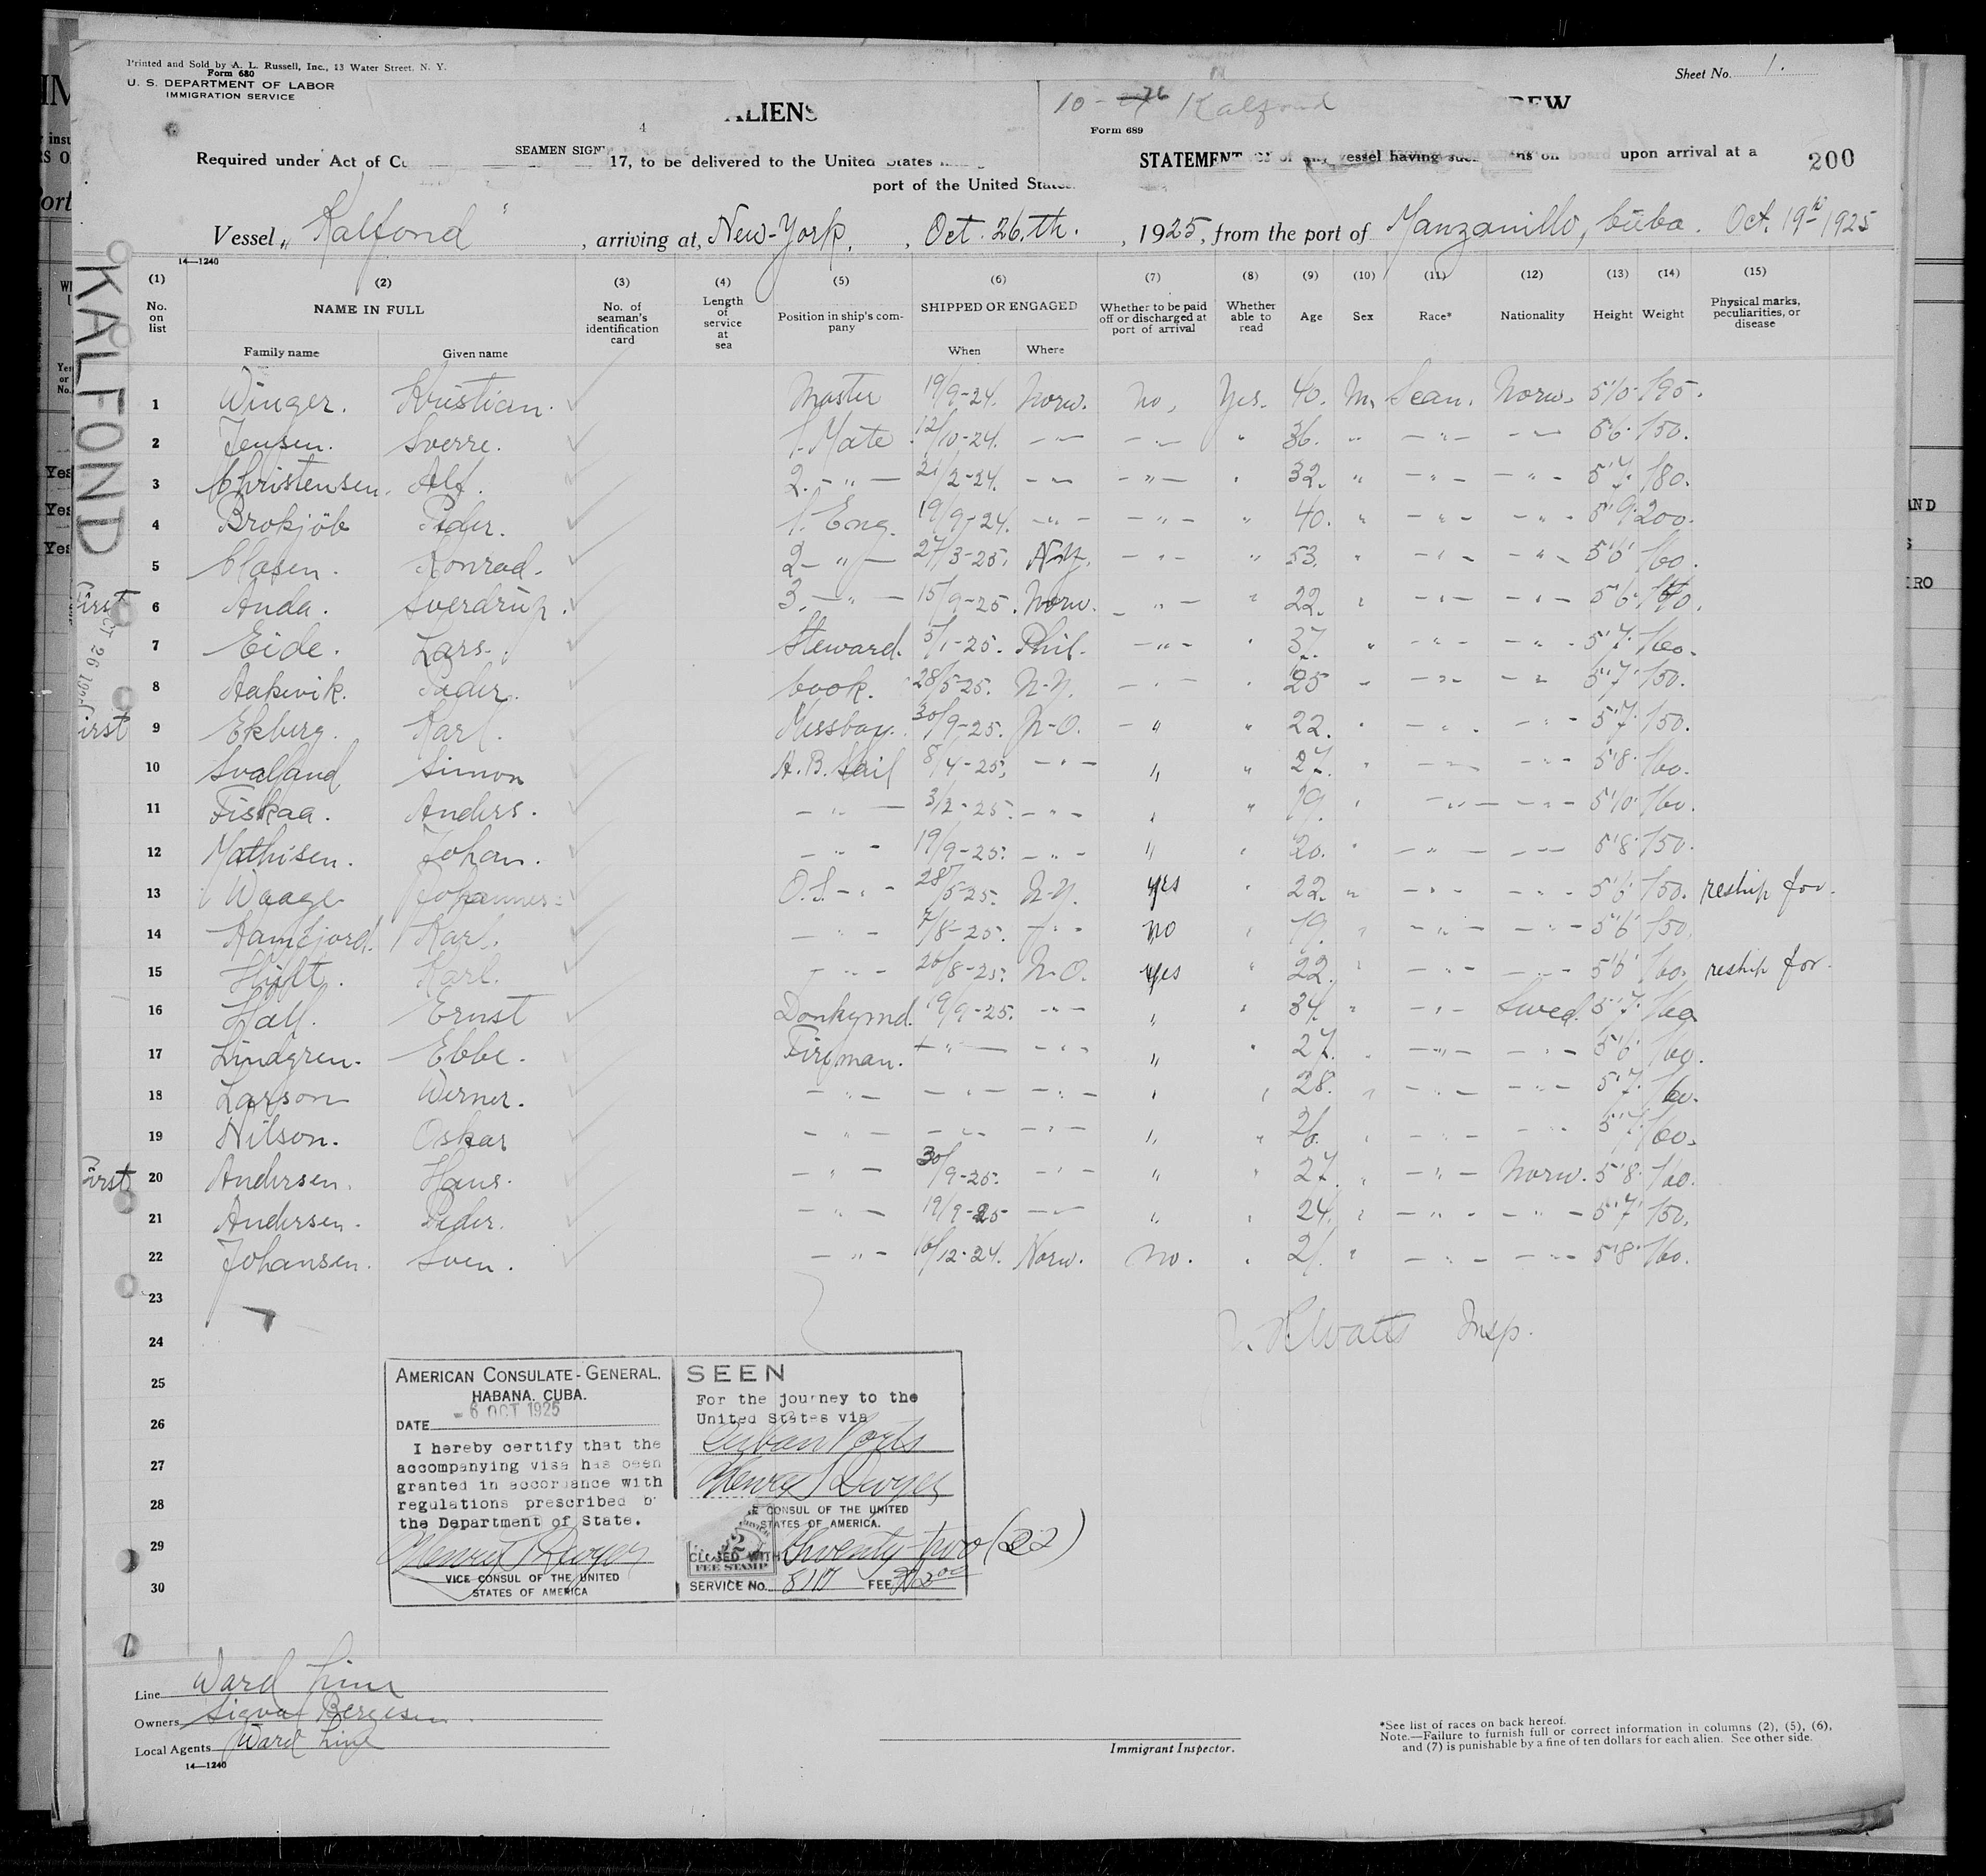 Printed and Sold by A. L. Russell, Inc., 13 Water Street, N. Y.
Form 680
U. S. DEPARTMENT OF LABOR
IMMIGRATION SERVICE
Sheet No. 1.
ALIENS
10-26 Kalfond
Form 689
SEAMEN
Required under Act of 17, to be delivered to the United States STATEMENT of any vessel having such on board upon arrival at a
port of the United States
200
Vessel „Kalfond", arriving at, New-York, Oct. 26.th., 1925, from the port of Manzanillo, Cuba. Oct. 19th 1925
KALFOND
14—1240
(1) (2) (3) (4) (5) (6) (7) (8) (9) (10) (11) (12) (13) (14) (15)
No. on list NAME IN FULL No. of seaman's identification card Length of service at sea Position in ship's company SHIPPED OR ENGAGED Whether to be paid off or discharged at port of arrival Whether able to read Age Sex Race* Nationality Height Weight Physical marks, peculiarities, or disease
Family name Given name When Where
1 Winger. Kristian. Master 19/9-24. Norw. No, Yes. 40. M. Scan. Norw. 5'10 195.
2 Jensen. Sverre. 1. Mate 12/10-24. —"— —"— " 36. " —"— —"— 5'6 150.
3 Christensen. Alf. 2. —"— 21/2-24. —"— —"— " 32. " —"— —"— 5'7 180.
4 Brokjöb Peder. 1. Eng. 19/9-24. —"— —"— " 40. " —"— —"— 5'9 200.
5 Clasen. Konrad. 2 —"— 27/3-25. N.Y. —"— " 53. " —"— —"— 5'6 160.
First 6 Anda. Sverdrup. 3. —"— 15/9-25. Norw. —"— " 22. " —"— —"— 5'6
7 Eide. Lars. Steward. 5/1-25. Phil. —"— " 37. " —"— —"— 5'7 160.
8 Aakevik. Peder. Cook. 28/5-25. N.Y. —"— " 25 " —"— —"— 5'7 150.
First 9 Ekberg. Karl. Messboy. 30/9-25. N-O. —"— " 22. " —"— —"— 5'7 150.
10 Svalland Simon A.B. Sail 8/4-25. —"— " " 27. " —"— —"— 5'8 160.
11 Fiskaa. Anders. —"— 3/2-25. —"— " " 19. " —"— —"— 5'10 160.
12 Mathisen. Johan. —"— 19/9-25. —"— " " 20. " —"— —"— 5'8 150.
13 Waage Johannes O.S. —"— 28/5-25. N.Y. yes " 22. " —"— —"— 5'6 150. reship for.
14 Ramfjord. Karl. —"— 7/8-25. —"— no " 19. " —"— —"— 5'6 150.
15 Hult. Karl. —"— 26/8-25. N.O. yes " 22. " —"— —"— 5'6 160. reship for.
16 Hall. Ernst Donkymd. 19/9-25. —"— " " 34. " —"— Swed. 5'7 160
17 Lindgren. Ebbe. Fireman. —"— —"— " " 27. " —"— —"— 5'6 160.
18 Larson Werner. —"— —"— —"— " " 28. " —"— —"— 5'7 160.
19 Nilson. Oskar —"— —"— —"— " " 26. " —"— —"— 5'7 160.
First 20 Andersen. Hans. —"— 30/9-25. —"— " " 27. " —"— Norw. 5'8 160.
21 Andersen. Peder. —"— 19/9-25 —"— " " 24. " —"— —"— 5'7 150.
22 Johansen. Sven. —"— 16/12-24. Norw. No. " 21. " —"— —"— 5'8 160.
23
24
25
26
27
28
29
30
Insp.
AMERICAN CONSULATE-GENERAL.
HABANA. CUBA.
DATE - 6 OCT 1925
I hereby certify that the
accompanying visa has been
granted in accordance with
regulations prescribed b
the Department of State.
Henry T Dwyer
VICE CONSUL OF THE UNITED
STATES OF AMERICA
SEEN
For the journey to the
United States via
Cuban Ports
Henry T Dwyer
CONSUL OF THE UNITED
STATES OF AMERICA.
CLOSED WITH twenty two (22)
FEE STAMP
SERVICE No. FEE
Line Ward Line
Owners Sigval Bergesen.
Local Agents Ward Line
14—1240
Immigrant Inspector.
*See list of races on back hereof.
Note.—Failure to furnish full or correct information in columns (2), (5), (6),
and (7) is punishable by a fine of ten dollars for each alien. See other side.